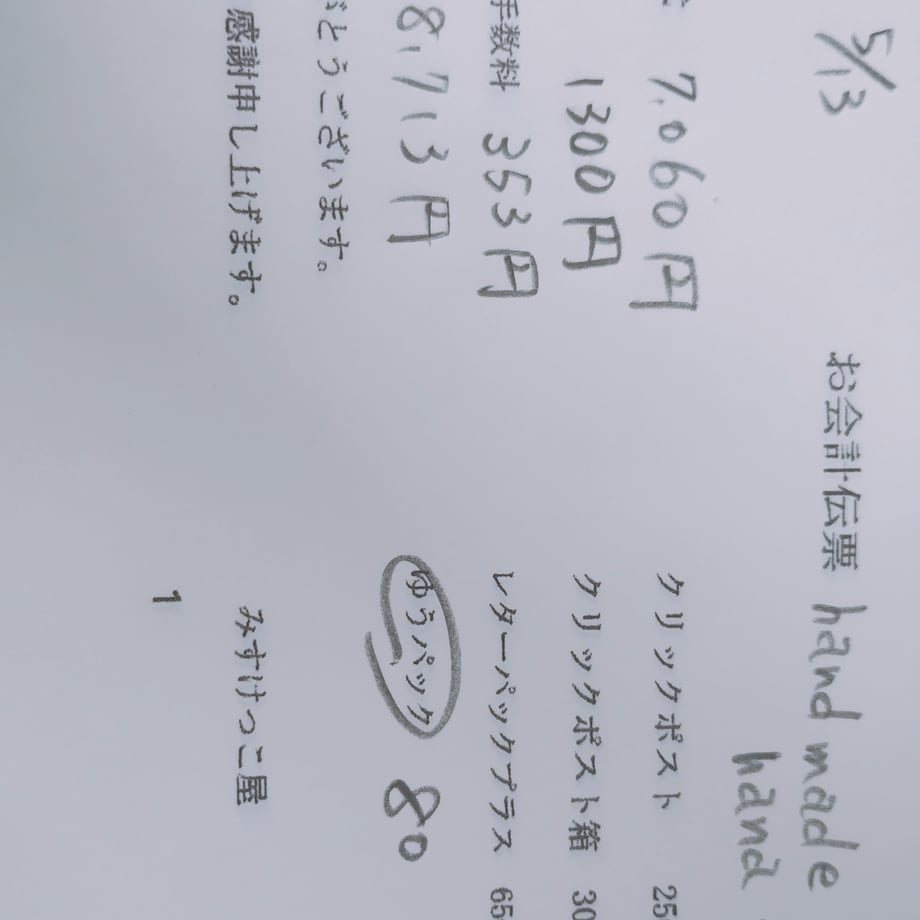 5/13
お会計伝票 hand made
hand
7,060円
クリックポスト 25
1300円
クリックポスト箱 30
手数料 353円
レターパックプラス 65
8,713円
ゆうパック 80
とうございます。
感謝申し上げます。
みすけっこ屋
1